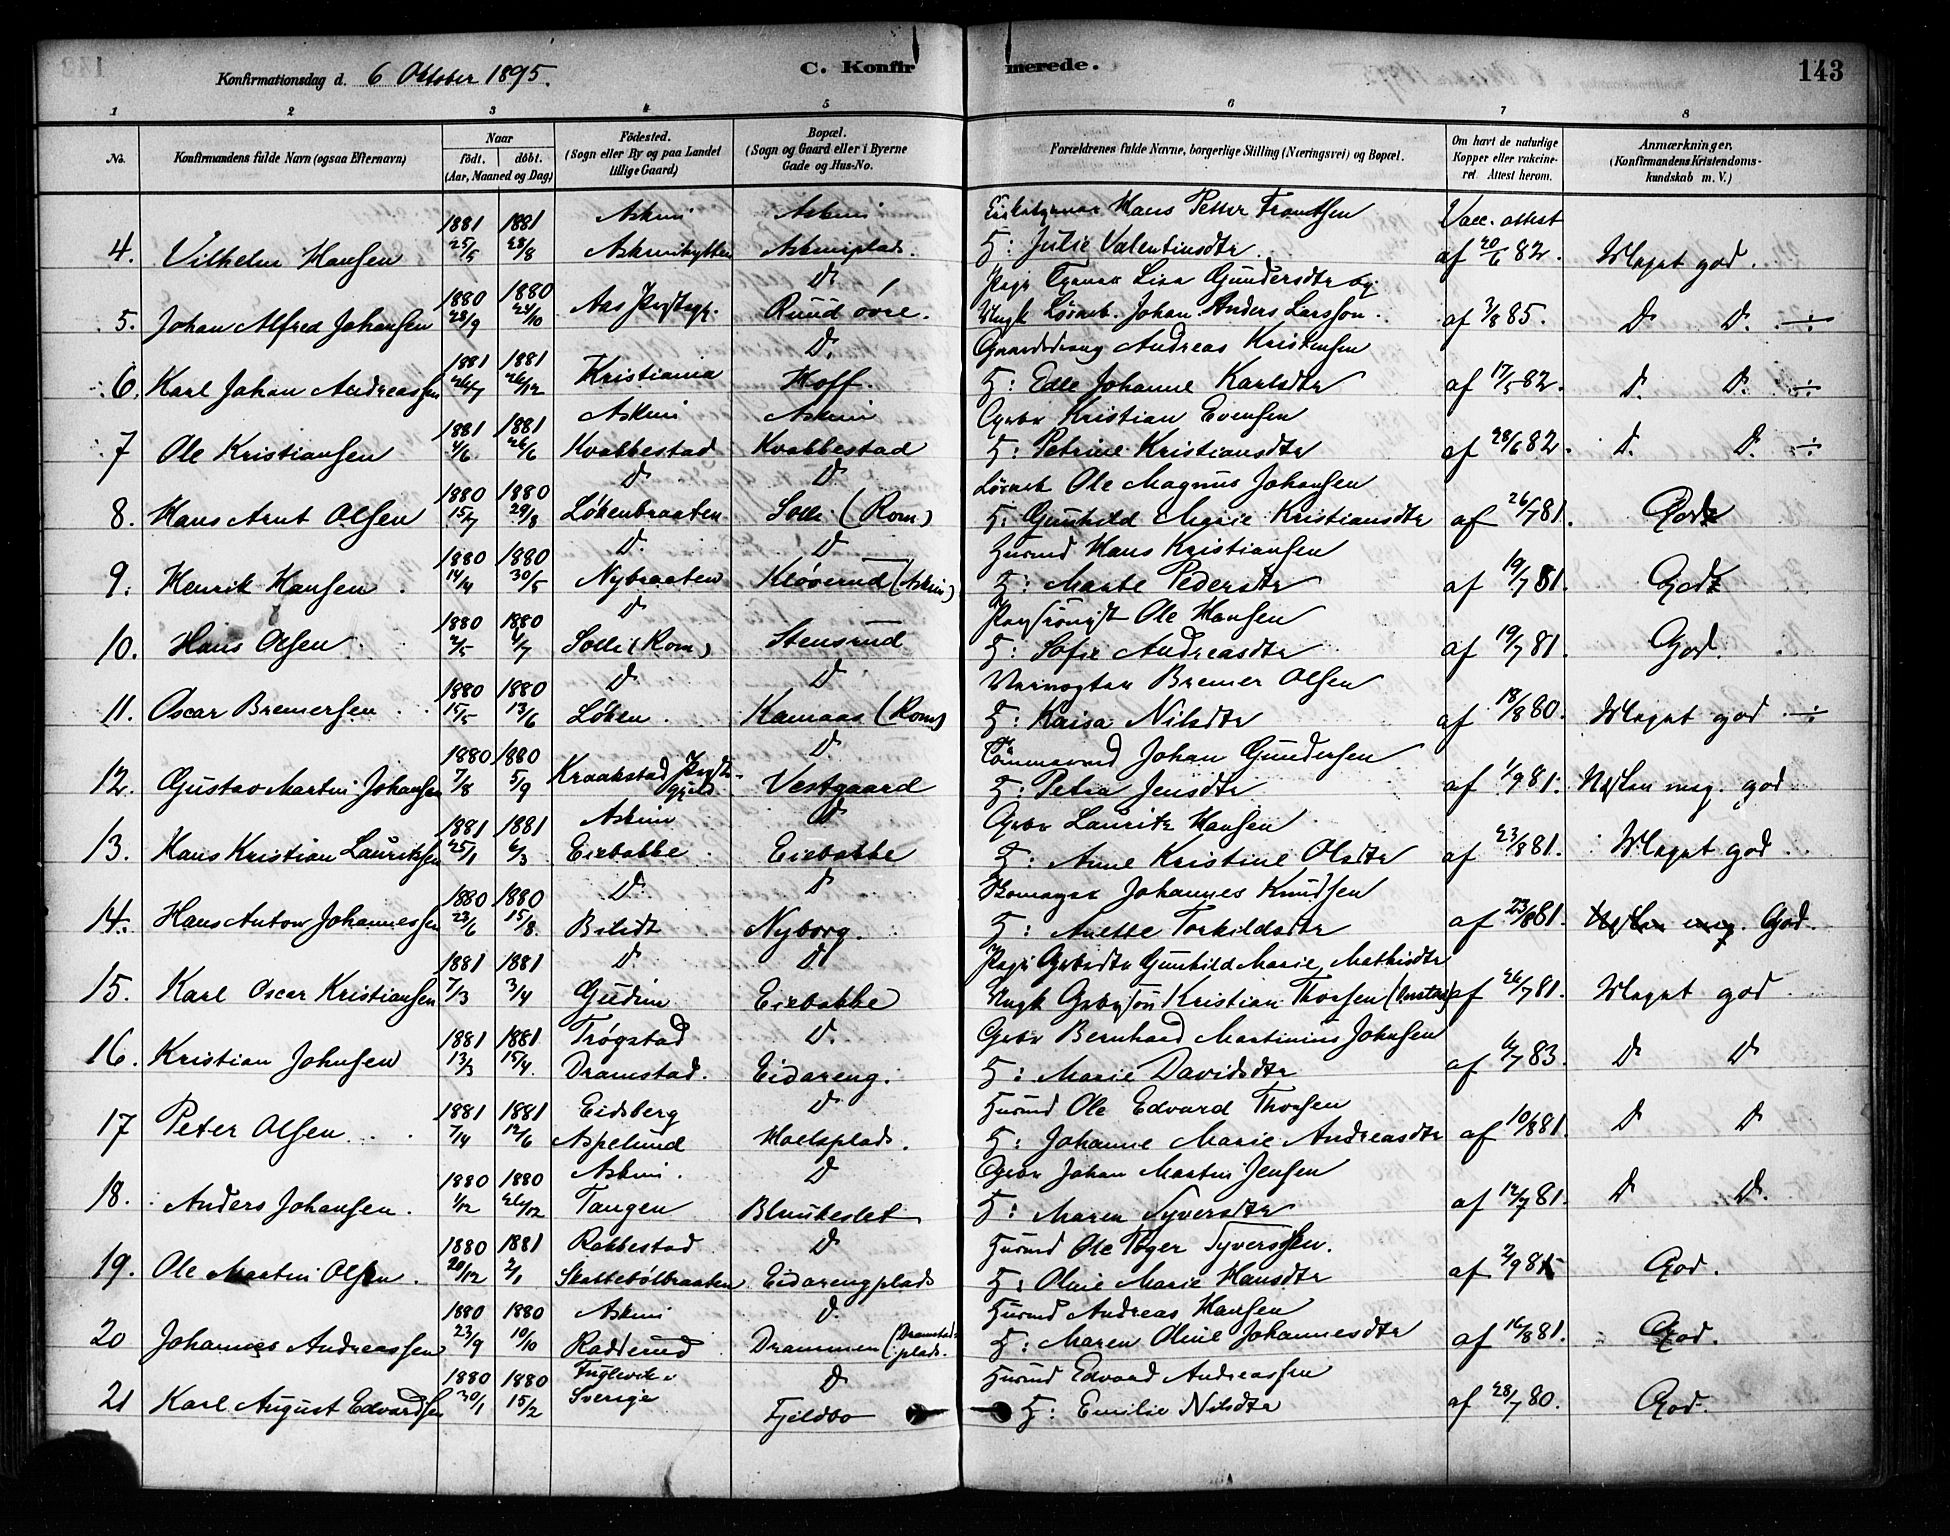 Konfirmationsdag d. 6 Oktober 1895. C. Konfirmerede. 143
1 2 3 4 5 6 7 8
No. Konfirmandens fulde Navn (ogsaa Efternavn) Naar födt. döbt. (Aar, Maaned og Dag) Födested. (Sogn eller By og paa Landet tillige Gaard) Bopæl. (Sogn og Gaard eller i Byerne Gade og Hus-No. Forældrenes fulde Navne, borgerlige Stilling (Næringsvei) og Bopæl. Om havt de naturlige Kopper eller vakcineret. Attest herom. Anmærkninger. (Konfirmandens Kristendomskundskab m. V.)
1881 1881 Askim Askim Hans Petter Frantsen Vacc. attest
4. Vilhelm Hansen 25/5 28/8 Askimhytten Askimplads. H: Julie Valentinsdtr af 20/6 82. Meget god.
1880 1880 D. Pige Lisa Gundersdtr og
5. Johan Alfred Johansen 28/9 24/10 Aas Ruud övre. Ungk Johan Anders Larsson. af 3/8 85. D. D. ÷
1881 1881 D. Gaardsdreng Andreas Kristensen
6. Karl Johan Andreassen 26/7 26/12 Kristiania Hoff. H: Edle Johanne Karlsdtr af 17/5 82. D. D. ÷
1881 1881 Askim Askim Gbr Kristian Evensen
7 Ole Kristiansen 4/6 26/6 Kvabbestad Kvabbestad H: Petrine Kristiansdtr af 28/6 82. D. D. ÷
1880 1880 D D Ole Magnus Johansen
8. Hans Arnt Olsen 15/7 29/8 Løkenbraaten Solli (Rom) H. Gunhild Marie Kristiansdtr af 26/7 81. God
1880 1880 D. D Husmd Hans Kristiansen
9. Henrik Hansen 14/4 30/5 Nybraaten Kløverud (Askim) H: Marte Pedersdtr af 19/7 81. God
1880 1880 D Ole Hansen
10. Hans Olsen 2/5 4/7 Solli (Rom) Stensrud H: Sofie Andreasdtr af 19/7 81. God.
1880 1880 D D Bremer Olsen
11. Oscar Bremersen 15/5 13/6 Løken. Kamaas (Rom) H: Kaisa Nilsdtr af 18/8 80. Meget god ÷
1880 1880 D Tømmermd Johan Gundersen
12. Gustav Martin Johansen 7/8 5/9 Kraakstad Vestgaard H: Petra Jensdtr af 1/9 81. Næsten meg. god
1881 1881 Askim D Gbr Lauritz Hansen
13. Hans Kristian Lauritzsen 25/1 6/3 Eiebakke Eiebakke H: Anne Kristine Olsdtr af 23/8 81. Meget god.
1880 1880 D. D Johannes Knudsen
14. Hans Anton Johannessen 23/6 15/8. Bilidt Nyborg. H: Anette Torkildsdtr af 23/8 81. Næsten meg. God.
1881 1881 D. D Pige Gunhild Marie Mathisdtr
15. Karl Oscar Kristiansen 7/3 3/4 Gudim Eiebakke Ungk Kristian Thorsen af 26/7 81. Meget god
1881 1881 Trøgstad D. Gbr Bernhard Martinius Johnsen
16. Kristian Johnsen 13/3 15/4. Dramstad. Eidareng. H: Marie Davidsdtr af 6/7 83. D D
1881 1881 Eidsberg D Husmd Ole Edvard Thorsen
17 Peter Olsen 7/4 12/6 Aspelund Moelsplads. H: Johanne Marie Andreasdtr af 10/8 81. D D
1880 1880 Askim. D Gbr Johan Martin Jensen
18. Anders Johansen. 1/12 26/12 Tangen H: Maren Syversdtr af 12/7 81. D D.
1880 1881 Rakkestad D Husmd Ole Syversen.
19. Ole Martin Olsen. 20/12 2/1 Skattebölbraaten Eidarengplads H: Oline Marie Hansdtr af 2/9 8 God.
1880 1880 Askim D. Husmd Andreas Hansen
20 Johannes Andreassen 23/9 10/10 Radderud Drammen (Dramstadplads. H: Maren Oline Johannesdtr af 16/8 81. God.
1880 1880 Fuglevik D Husmd Edvard Andreassen
21 Karl August Edvardsen 30/1 15/2 Sverige Fjeldbo H: Emilie Nilsdtr af 28/7 80. God.